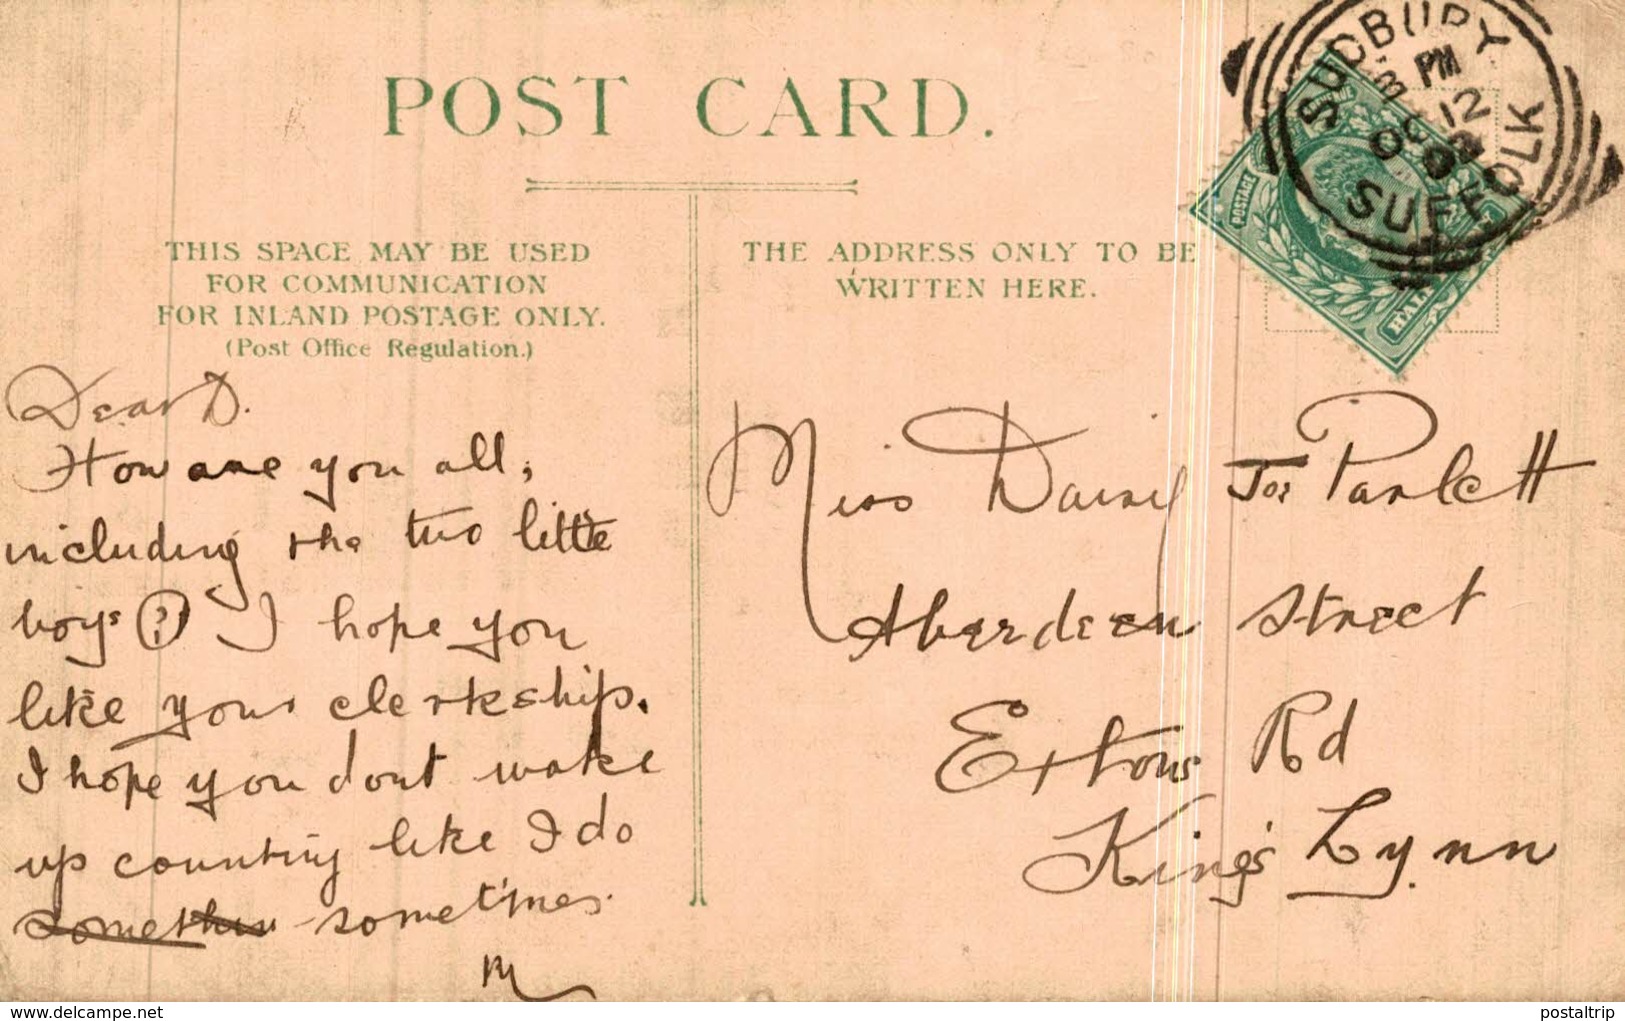 POST CARD.
THIS SPACE MAY BE USED
FOR COMMUNICATION
FOR INLAND POSTAGE ONLY.
(Post Office Regulation.)
THE ADDRESS ONLY TO BE
WRITTEN HERE.
SUDBURY
PM
OC 12
SUFFOLK
POSTAGE
HALF
Dear D.
How are you all,
including the two little
boys (?) I hope you
like your clerkship.
I hope you dont wake
up counting like I do
sometimes.
M
Miss Daisy Parlett
Aberdeen Street
Extons Rd
King's Lynn
www.delcampe.net
postaltrip